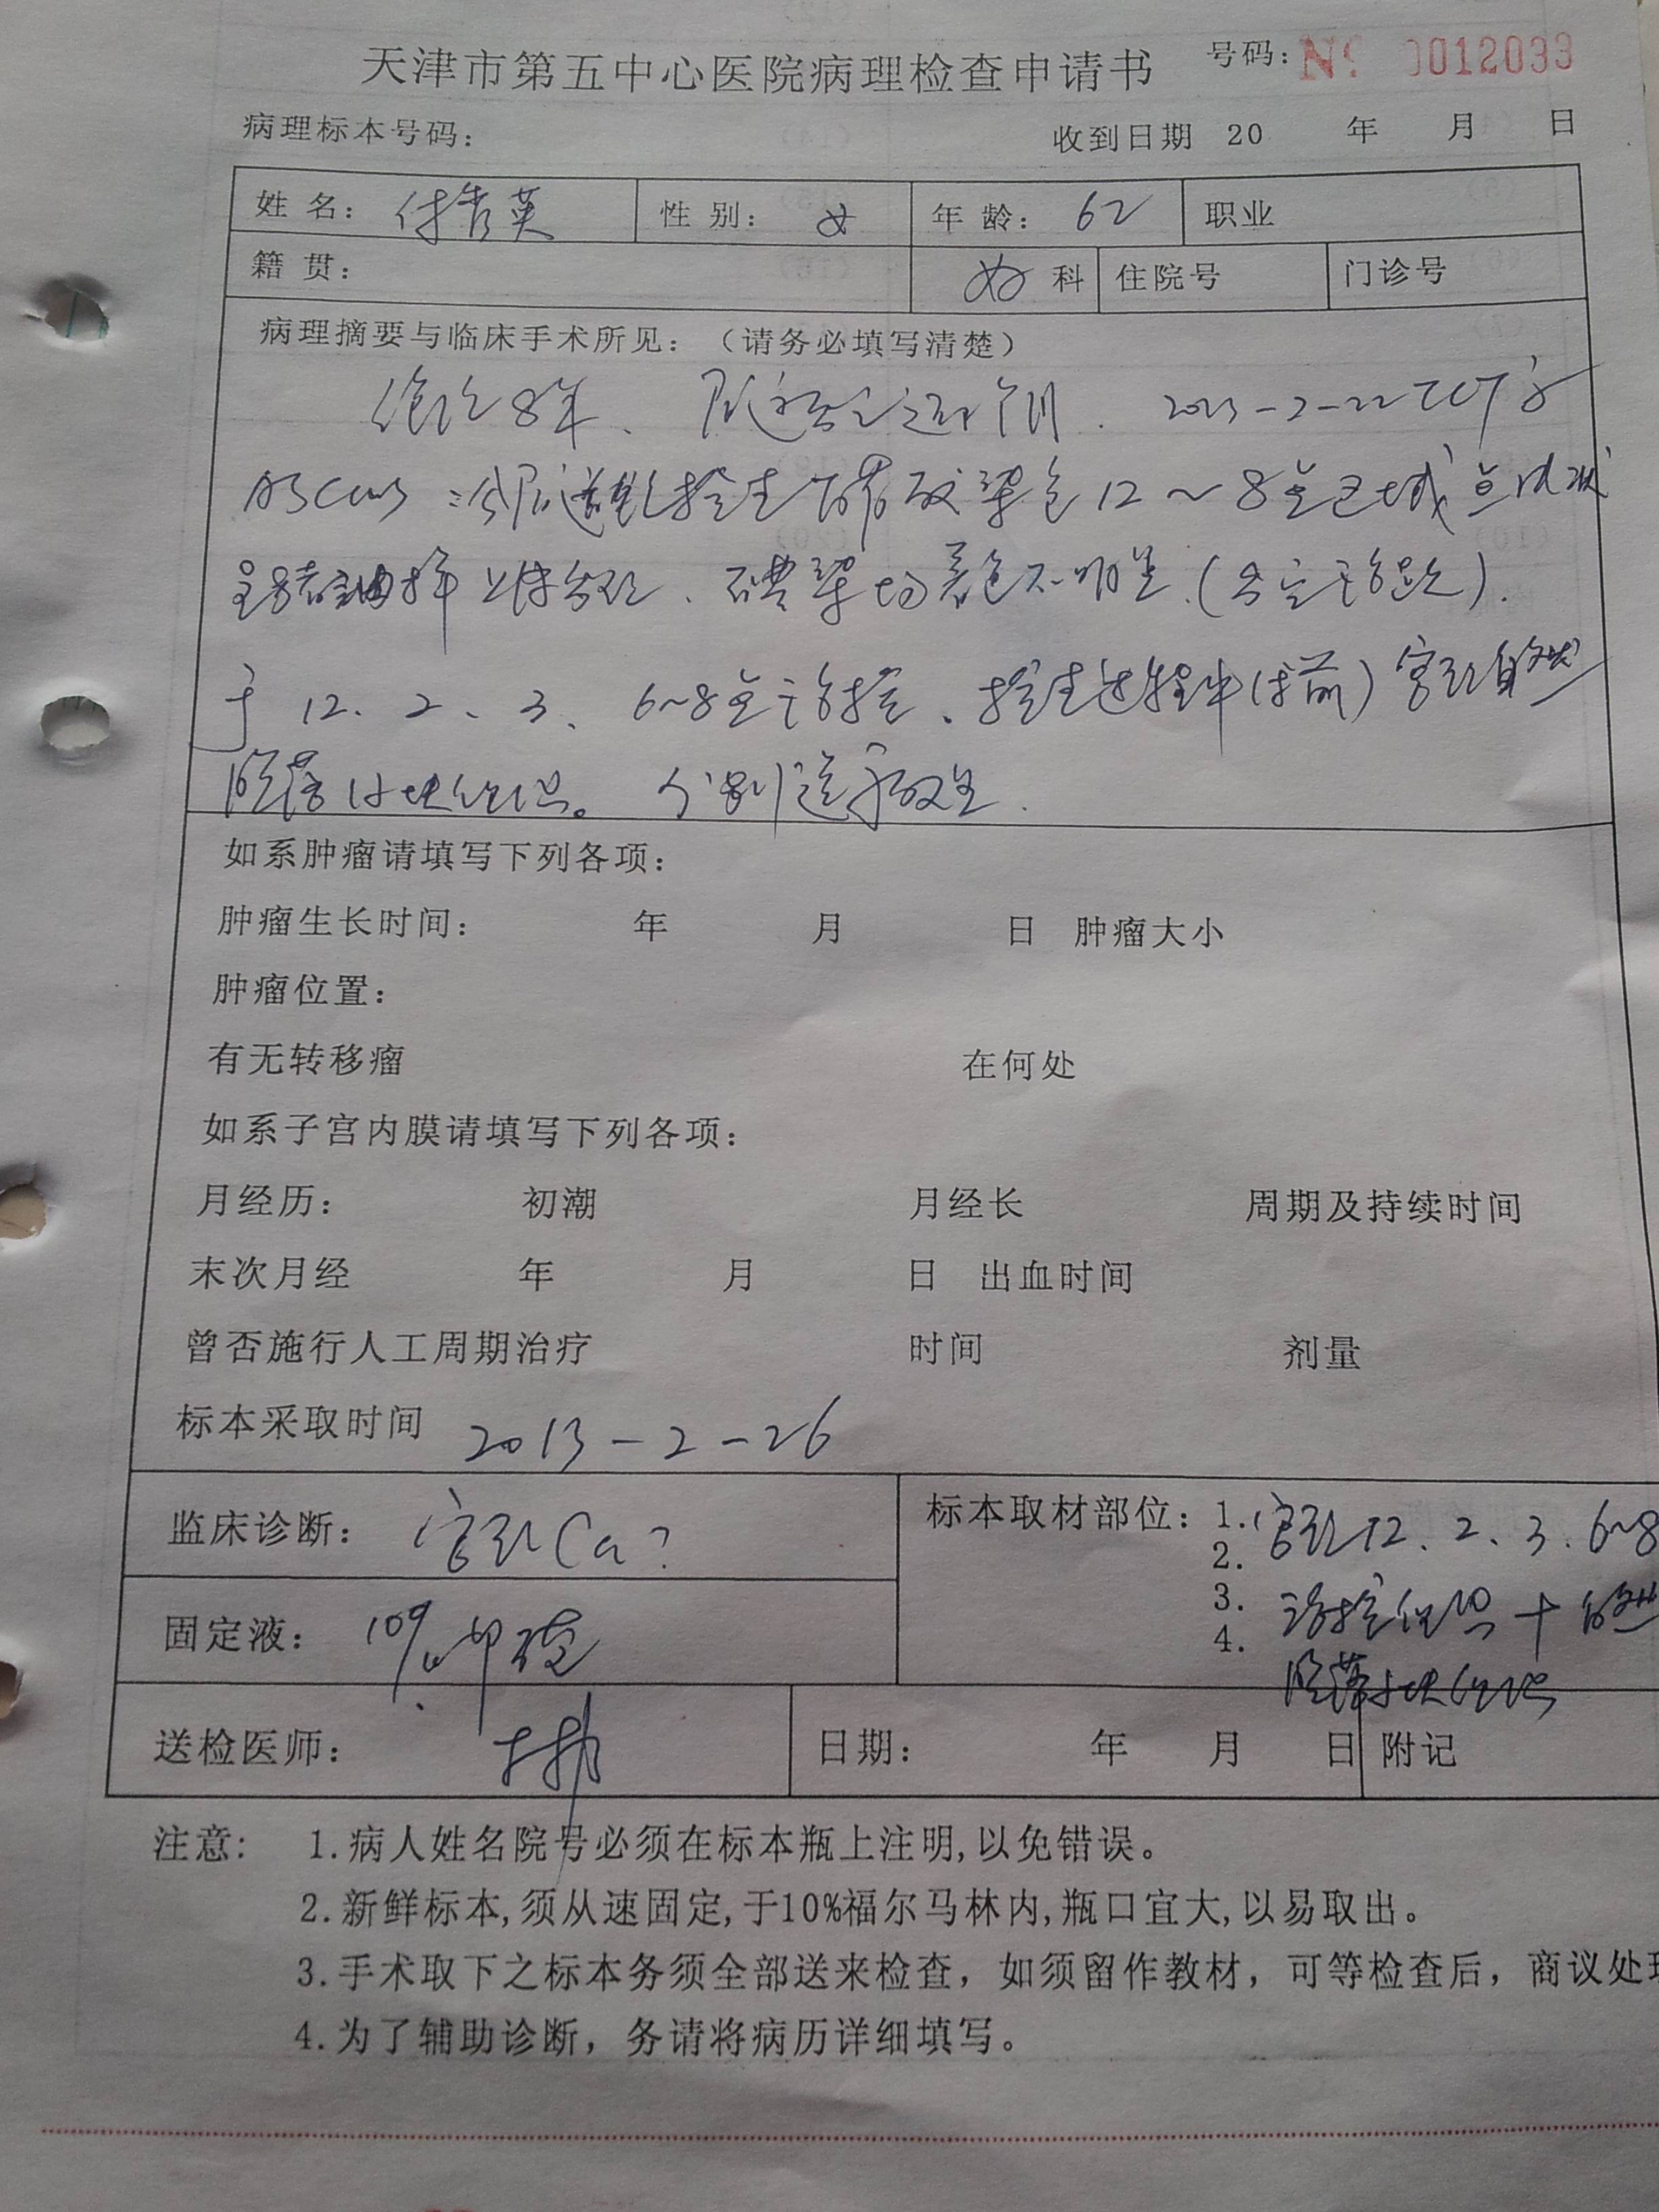 天津市第五中心医院病理检查申请书 号码: № 0012033
病理标本号码: 收到日期 20 年 月 日
姓名: 付秀英 性别: 女 年龄: 62 职业
籍贯: 妇科 住院号 门诊号
病理摘要与临床手术所见:(请务必填写清楚)
绝经8年、 2013-2-22 TCT
ASCUS 12~8点区域
碘染均着色不明显.
于12、2、3、6~8点 (术前)宫颈自然
脱落小块组织。 分别送病理.
如系肿瘤请填写下列各项:
肿瘤生长时间: 年 月 日 肿瘤大小
肿瘤位置:
有无转移瘤 在何处
如系子宫内膜请填写下列各项:
月经历: 初潮 月经长 周期及持续时间
末次月经 年 月 日 出血时间
曾否施行人工周期治疗 时间 剂量
标本采取时间 2013-2-26
监床诊断: 宫颈Ca? 标本取材部位: 1. 宫颈12、2、3、6~8
2.
3. 组织+自然
4. 脱落小块组织
固定液: 10%甲醛
送检医师: 日期: 年 月 日 附记
注意: 1.病人姓名院号必须在标本瓶上注明,以免错误。
2.新鲜标本,须从速固定,于10%福尔马林内,瓶口宜大,以易取出。
3.手术取下之标本务须全部送来检查,如须留作教材,可等检查后,商议处理
4.为了辅助诊断,务请将病历详细填写。